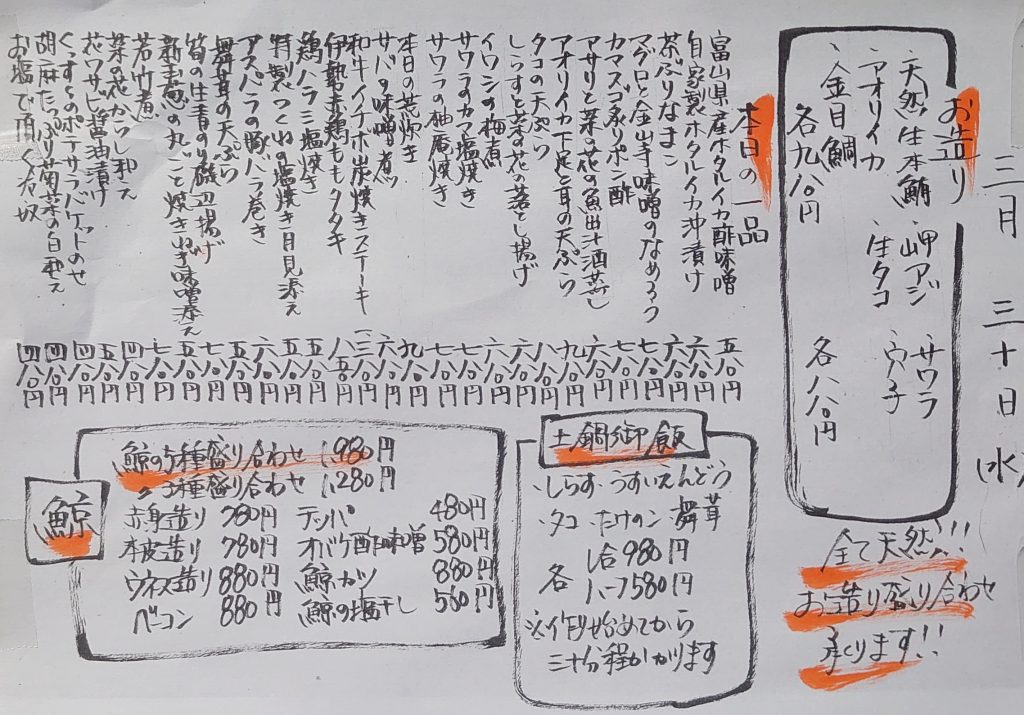 三月三十日(水)
お造り
・天然生本鮪 ・岬アジ ・サワラ
・アオリイカ ・生タコ ・穴子
・金目鯛
各九八〇円 各八八〇円
全て天然!!
お造り盛り合わせ
承ります!!
本日の一品
富山県産ホタルイカ酢味噌 五八〇円
自家製ホタルイカ沖漬け 六八〇円
茶ぶりなまこ 六八〇円
マグロと金山寺味噌のなめろう 七八〇円
カマスゴ炙りポン酢 七八〇円
アサリと菜の花の魚出汁酒蒸し 六八〇円
アオリイカ下足と耳の天ぷら 九八〇円
タコの天ぷら 八八〇円
しらすと菜の花の落とし揚げ 六八〇円
イワシの梅煮 六八〇円
サワラのカマ塩焼き 七八〇円
サワラの柚庵焼き 七八〇円
本日の荒炊き 九八〇円
サバの味噌煮 六八〇円
和牛イチボ炭焼きステーキ
伊勢赤鶏ももタタキ 八五〇円
鶏ハラミ塩焼き 五八〇円
特製つくねの塩焼き 月見添え 五八〇円
アスパラの豚バラ巻き 六八〇円
舞茸の天ぷら 五八〇円
筍の生青のり磯辺揚げ 七八〇円
新玉葱の丸ごと焼き ねぎ味噌添え 五八〇円
若竹煮 七八〇円
菜の花からし和え 四八〇円
花ワサビ醤油漬け 五八〇円
ポテサラバケットのせ 四八〇円
胡麻たっぷり菊菜の白和え 四八〇円
お塩で頂く冷奴 四八〇円
土鍋御飯
・しらす ・うすいえんどう
・タコ ・たけのこ ・舞茸
各 1合980円
ハーフ580円
※作り始めてから
三十分程かかります
鯨
鯨の5種盛り合わせ 1,980円
〃 3種盛り合わせ 1,280円
赤身造り 780円 テッパ 480円
本皮造り 780円 オバケ酢味噌 580円
ウネス造り 880円 鯨カツ 880円
ベーコン 880円 鯨の塩干し 560円